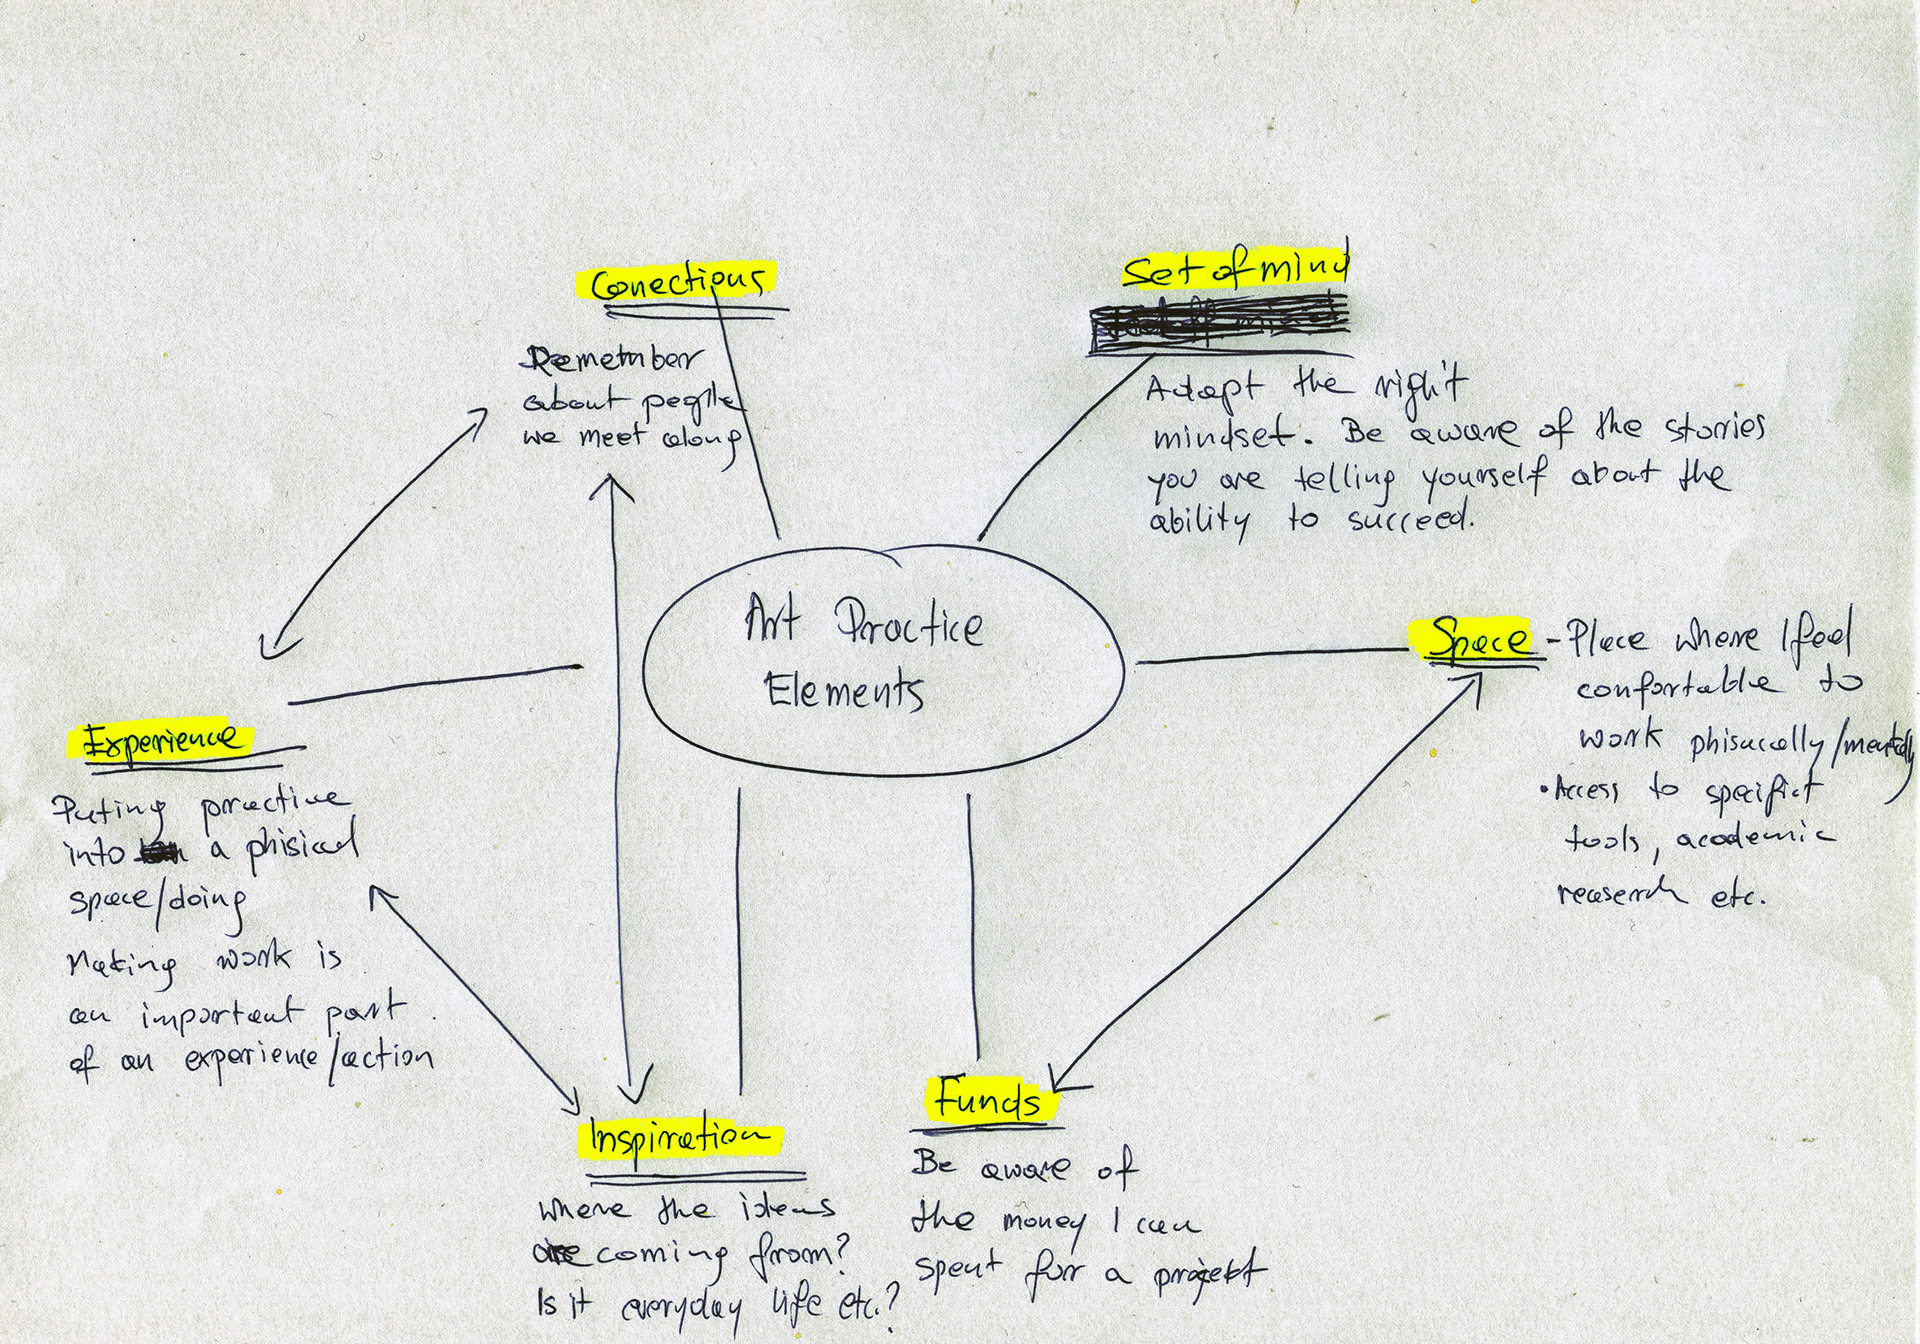 Conections
Remember
about people
we meet along
Set of mind
Adapt the right
mindset. Be aware of the stories
you are telling yourself about the
ability to succeed.
Art Practice
Elements
Space - Place where I feel
confortable to
work phisically/mentally
• Access to specifict
tools, academic
reaserch etc.
Experience
Puting practice
into a phisical
space/doing
Making work is
an important part
of an experience/action
Inspiration
Where the ideas
are coming from?
Is it everyday life etc.?
Funds
Be aware of
the money I can
spent for a projekt